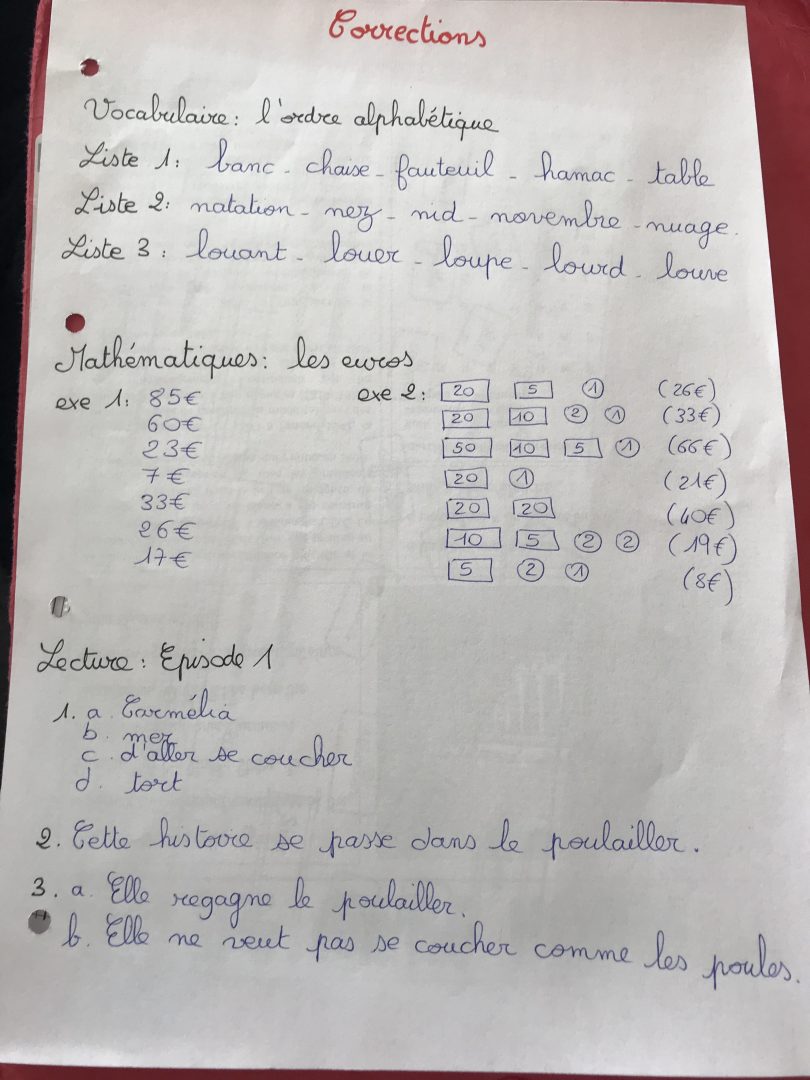 Corrections
Vocabulaire: l'ordre alphabétique
Liste 1: banc - chaise - fauteuil - hamac - table
Liste 2: natation - nez - nid - novembre - nuage.
Liste 3: louant - louer - loupe - lourd - louve
Mathématiques: les euros
exe 1: 85€
60€
23€
7€
33€
26€
17€
exe 2: 20 5 1 (26€)
20 10 2 1 (33€)
50 10 5 1 (66€)
20 1 (21€)
20 20 (40€)
10 5 2 2 (19€)
5 2 1 (8€)
Lecture: Episode 1
1. a. Carmélia
b. mer
c. d'aller se coucher
d. tort
2. Cette histoire se passe dans le poulailler.
3. a. Elle regagne le poulailler.
b. Elle ne veut pas se coucher comme les poules.